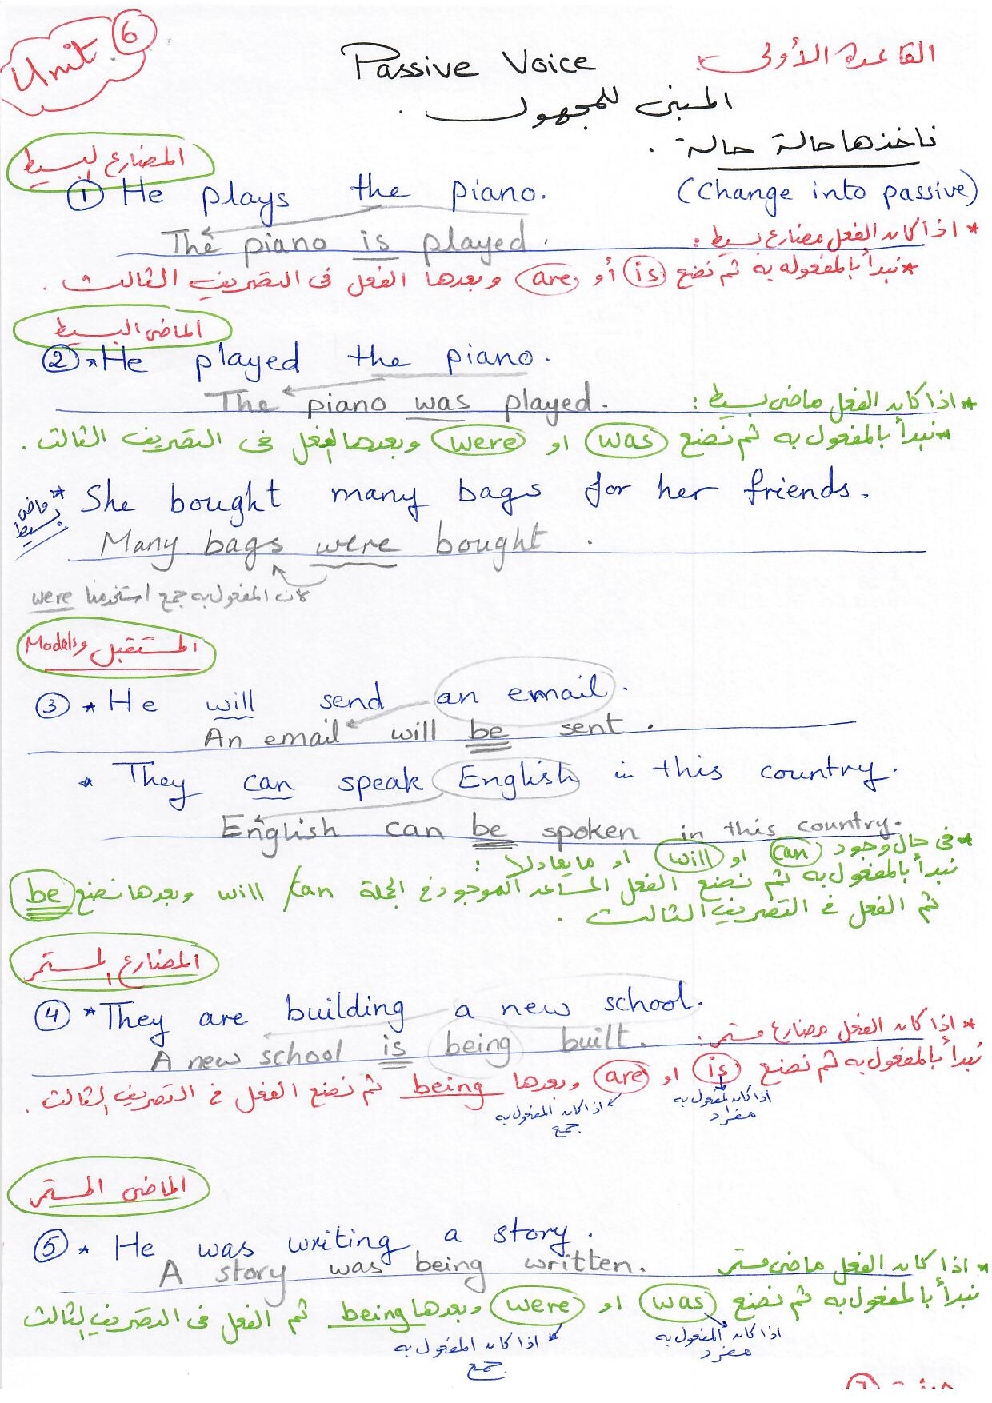 Unit 6
القاعدة الأولى:
Passive Voice
المبنى للمجهول.
ناخذها حالة حالة.
المضارع البسيط
① He plays the piano. (Change into passive)
The piano is played.
* اذا كان الفعل مضارع بسيط:
* نبدأ بالمفعول به ثم نضع is أو are وبعدها الفعل فى التصريف الثالث.
الماضى البسيط
② * He played the piano.
The piano was played.
* اذا كان الفعل ماضى بسيط:
* نبدأ بالمفعول به ثم نضع was او were وبعدها الفعل فى التصريف الثالث.
* She bought many bags for her friends.
ماضى بسيط
Many bags were bought.
لان المفعول به جمع استخدمنا were
المستقبل و Models
③ * He will send an email.
An email will be sent.
* They can speak English in this country.
English can be spoken in this country.
* فى حال وجود can او will او ما يعادلا:
نبدأ بالمفعول به ثم نضع الفعل المساعد الموجود فى الجملة will / can وبعدها نضع be
ثم الفعل فى التصريف الثالث.
المضارع المستمر
④ * They are building a new school.
A new school is being built.
* اذا كان الفعل مضارع مستمر:
نبدأ بالمفعول به ثم نضع is او are وبعدها being ثم نضع الفعل فى التصريف الثالث.
اذا كان المفعول به مفرد
اذا كان المفعول به جمع
الماضى المستمر
⑤ * He was writing a story.
A story was being written.
* اذا كان الفعل ماضى مستمر
نبدأ بالمفعول به ثم نضع was او were وبعدها being ثم الفعل فى التصريف الثالث
اذا كان المفعول به مفرد
اذا كان المفعول به جمع